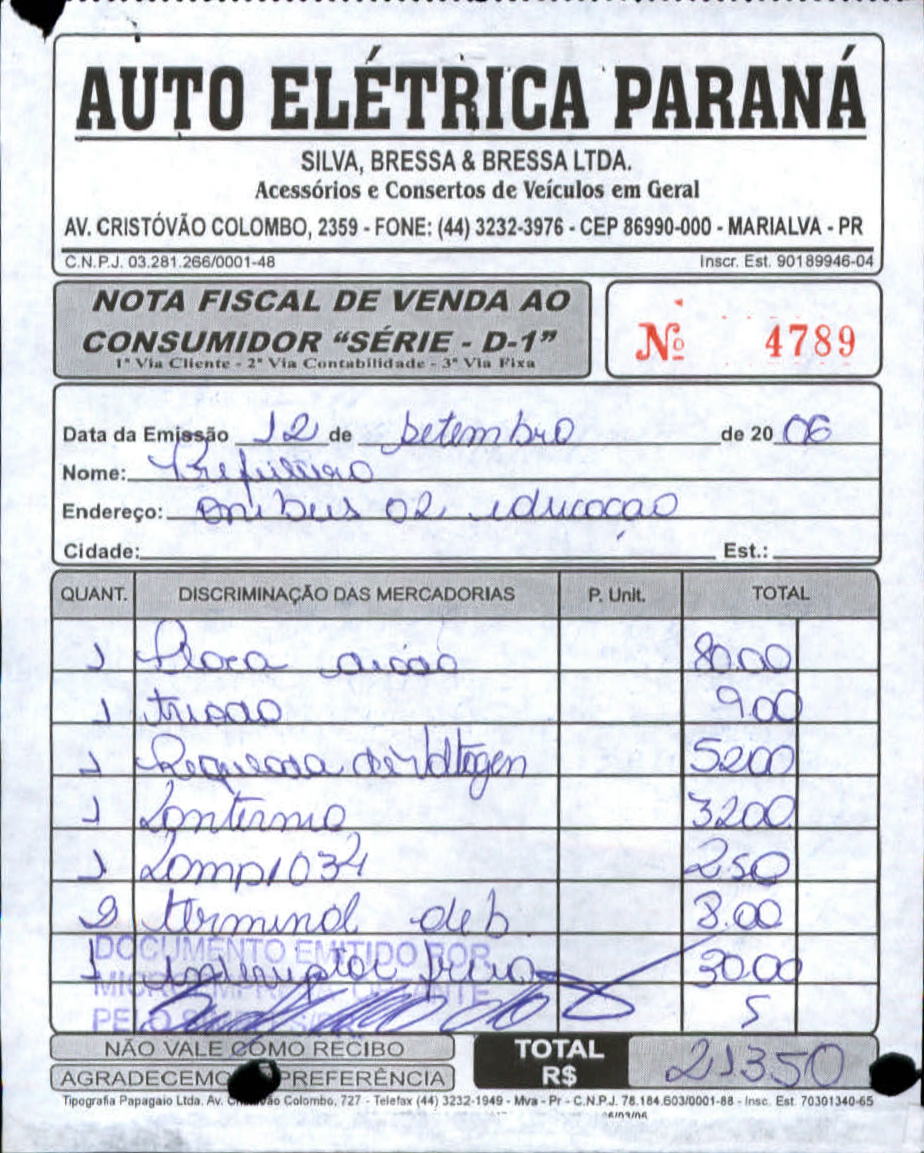 AUTO ELÉTRICA PARANÁ
SILVA, BRESSA & BRESSA LTDA.
Acessórios e Consertos de Veículos em Geral
AV. CRISTÓVÃO COLOMBO, 2359 - FONE: (44) 3232-3976 - CEP 86990-000 - MARIALVA - PR
C.N.P.J. 03.281.266/0001-48 Inscr. Est. 90189946-04
NOTA FISCAL DE VENDA AO
CONSUMIDOR “SÉRIE - D-1”
1ª Via Cliente - 2ª Via Contabilidade - 3ª Via Fixa
Nº 4789
Data da Emissão 12 de setembro de 20 06
Nome:
Endereço: onibus 02 educação
Cidade: Est.:
QUANT. DISCRIMINAÇÃO DAS MERCADORIAS P. Unit. TOTAL
1 Placa 80.00
1 9.00
1 de Voltagen 52.00
1 Lanterna 32.00
1 Lamp 1034 2.50
2 terminal de b. 8.00
DOCUMENTO EMITIDO POR
1 Interruptor freio 30.00
PELO
5
NÃO VALE COMO RECIBO
TOTAL R$ 213.50
AGRADECEMOS PREFERÊNCIA
Tipografia Papagaio Ltda. Av. Cristóvão Colombo, 727 - Telefax (44) 3232-1949 - Mva - Pr - C.N.P.J. 78.184.603/0001-88 - Insc. Est. 70301340-65